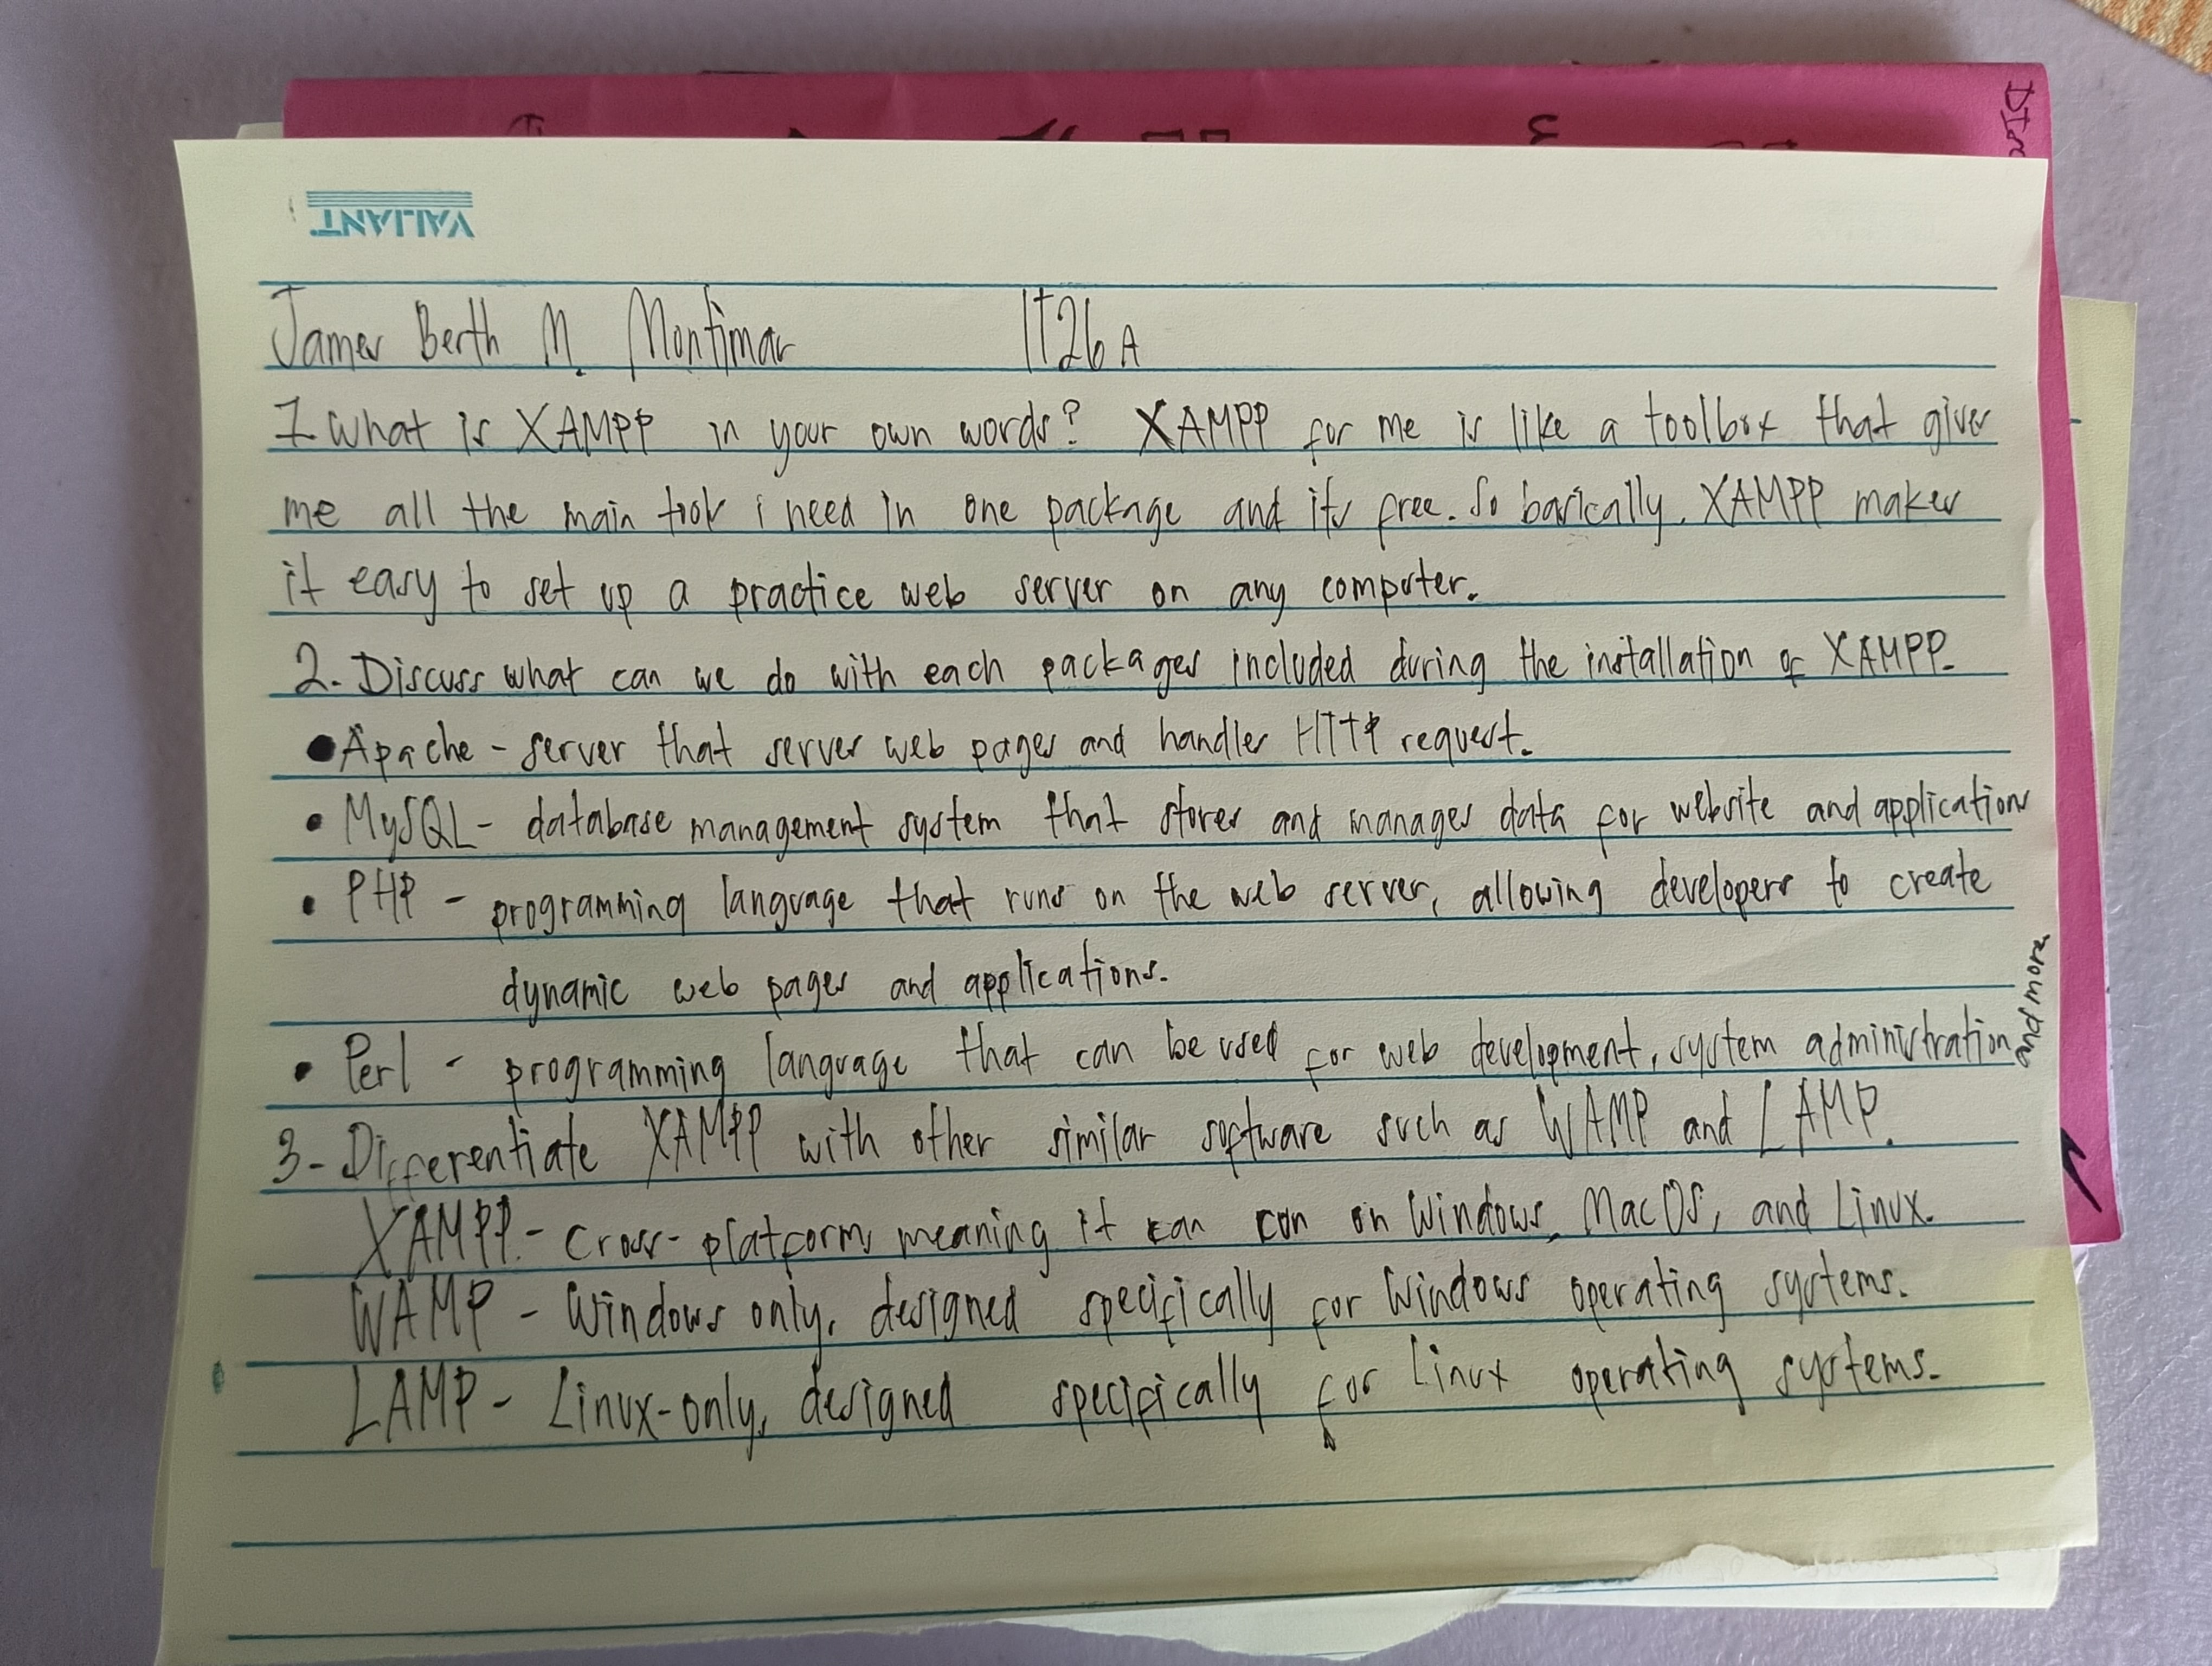 VALIANT
James Berth M. Montimar IT26A
1. What is XAMPP in your own words? XAMPP for me is like a toolbox that gives
me all the main tools i need in one package and its free. So basically. XAMPP makes
it easy to set up a practice web server on any computer.
2. Discuss what can we do with each packages included during the installation of XAMPP.
• Apache - server that serves web pages and handles HTTP request.
• MySQL - database management system that stores and manages data for website and applications
• PHP - programming language that runs on the web server, allowing developers to create
dynamic web pages and applications.
• Perl - programming language that can be used for web development, system administration and more.
3- Differentiate XAMPP with other similar software such as WAMP and LAMP.
XAMPP. - Cross-platform, meaning it can run on Windows, MacOS, and Linux.
WAMP - Windows only, designed specifically for Windows operating systems.
LAMP - Linux-only, designed specifically for Linux operating systems.